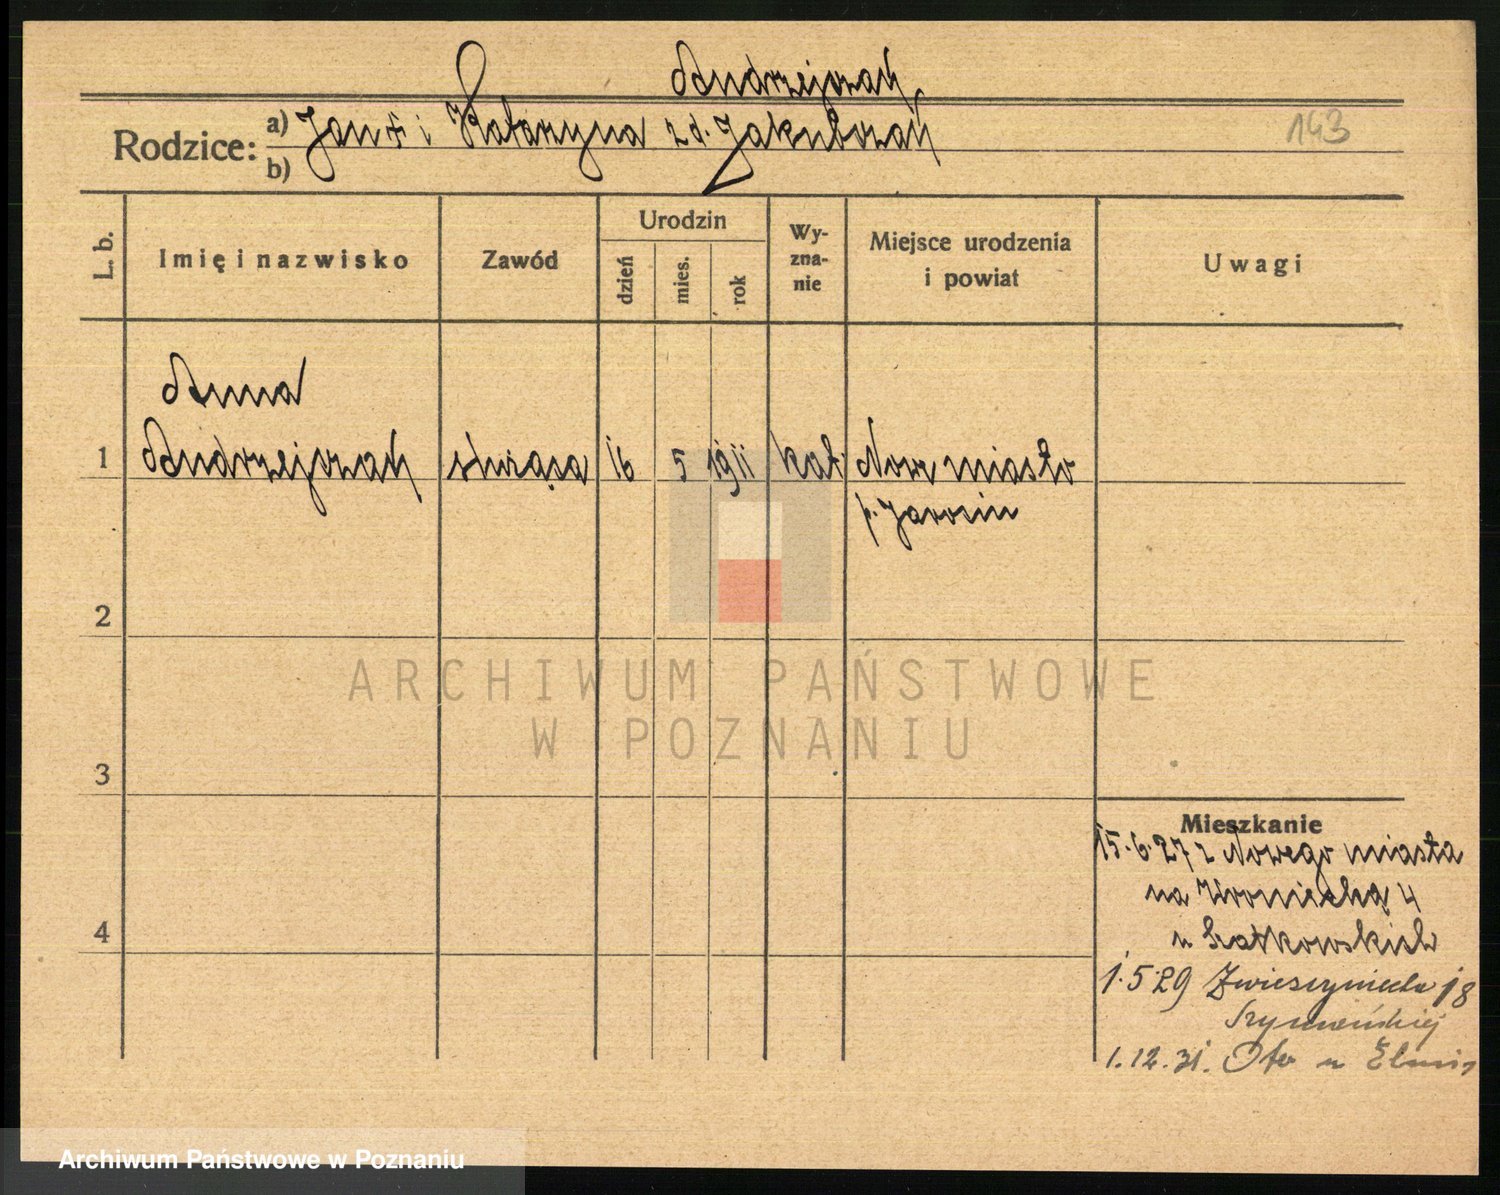 Andrzejczak
Rodzice: a) Jan i Katarzyna zd. Jakubczak
b)
143
L. b.
Imię i nazwisko
Zawód
Urodzin
dzień
mies.
rok
Wy-
zna-
nie
Miejsce urodzenia
i powiat
Uwagi
Anna
1 Andrzejczak służąca 16 5 1911 kat. Nowe miasto
p. Jarocin
2
ARCHIWUM PAŃSTWOWE
W POZNANIU
3
Mieszkanie
15.6.27 z Nowego miasta
na Wroniecką 4
4
1.5 29 18
1.12.31. u
Archiwum Państwowe w Poznaniu